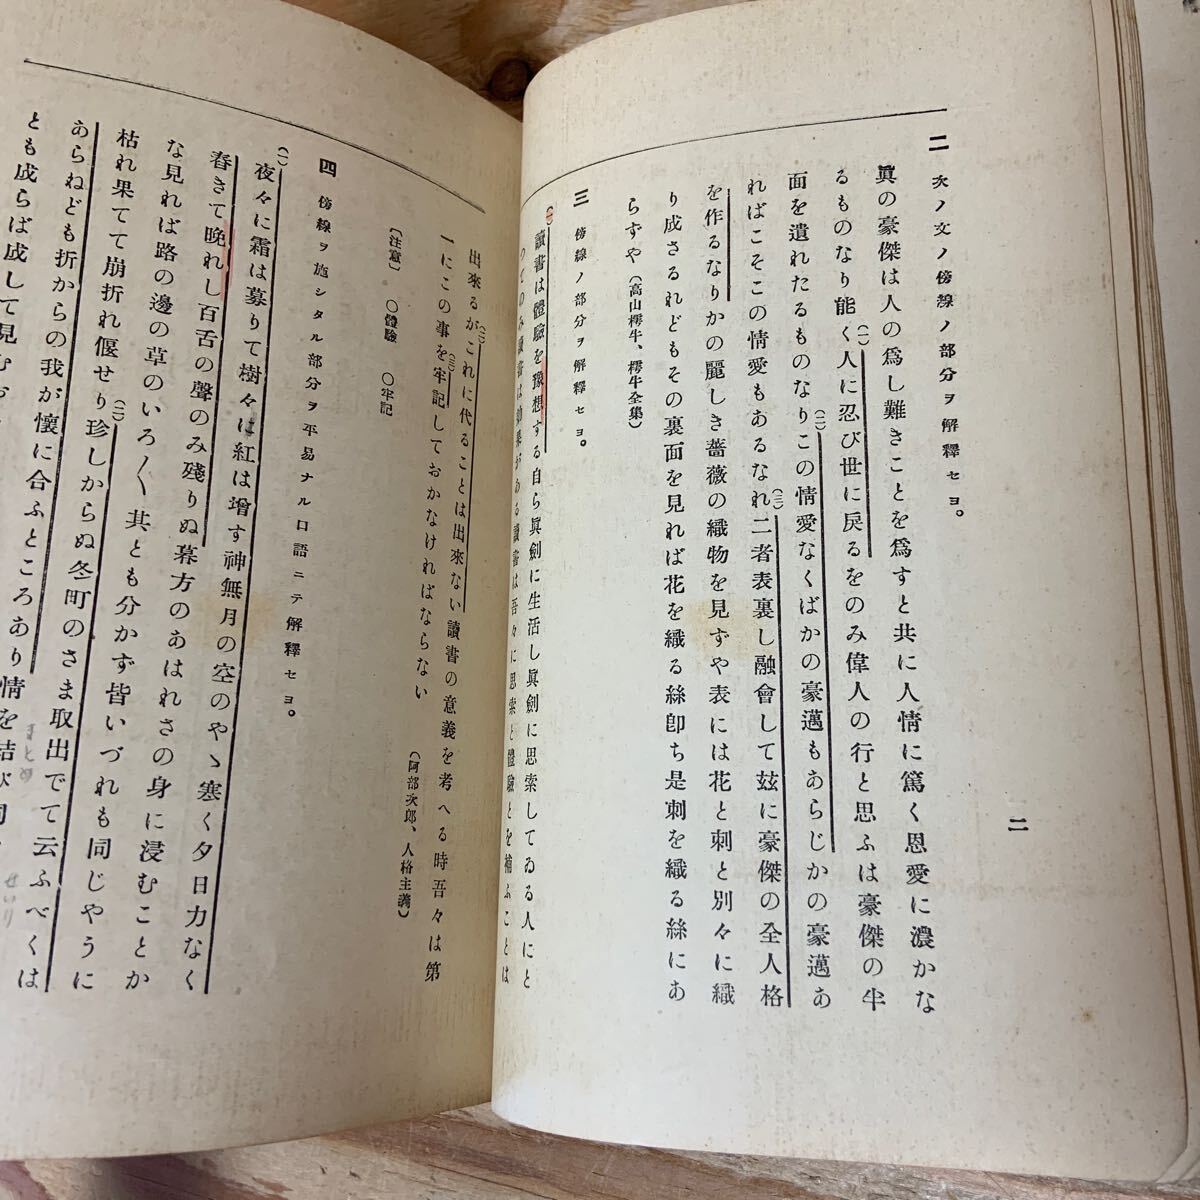 二
二 次ノ文ノ傍線ノ部分ヲ解釋セヨ。
眞の豪傑は人の爲し難きことを爲すと共に人情に篤く恩愛に濃かな
るものなり能く(一)人に忍び世に戾るをのみ偉人の行と思ふは豪傑の半
面を遺れたるものなり(二)この情愛なくばかの豪邁もあらじかの豪邁あ
ればこそこの情愛もあるなれ(三)二者表裏し融會して玆に豪傑の全人格
を作るなりかの麗しき薔薇の織物を見ずや表には花と刺と別々に織
り成さるれどもその裏面を見れば花を織る絲卽ち是刺を織る絲にあ
らずや(高山樗牛、樗牛全集)
三 傍線ノ部分ヲ解釋セヨ。
(一)讀書は體驗を豫想する自ら眞劍に生活し眞劍に思索してゐる人にと
つてのみ讀書は効果がある讀書は吾々に思索と體驗とを補ふことは
出來るが(二)これに代ることは出來ない讀書の意義を考へる時吾々は第
一にこの事を(三)牢記しておかなければならない (阿部次郎、人格主義)
〔注意〕 〇體驗 〇牢記
四 傍線ヲ施シタル部分ヲ平易ナル口語ニテ解釋セヨ。
(一)夜々に霜は募りて樹々に紅は增す神無月の空のやゝ寒く夕日力なく
舂きて晩れし百舌の聲のみ殘りぬ暮方のあはれさの身に浸むことか
な見れば路の邊の草のいろ〱其とも分かず皆いづれも同じやうに
枯れ果てて崩折れ偃せり(二)珍しからぬ冬町のさま取出でて云ふべくは
あらねども折からの我が懷に合ふところあり情を結び
とも成らば成して見むお